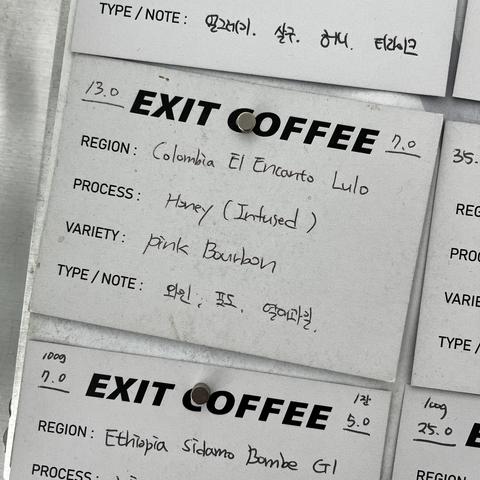 TYPE / NOTE : 밀크쉐이크. 살구. 허니. 티라이크
13.0 EXIT COFFEE 7.0
REGION : Colombia El Encanto Lulo
PROCESS : Honey (Infused)
VARIETY : pink Bourbon
TYPE / NOTE : 와인, 포도, 열대과일.
35.
REG
PROC
VARIE
TYPE
100g 7.0 EXIT COFFEE 1잔 5.0
REGION : Ethiopia Sidamo Bombe G1
PROCESS :
100g 25.0 E
REGION
PROCES